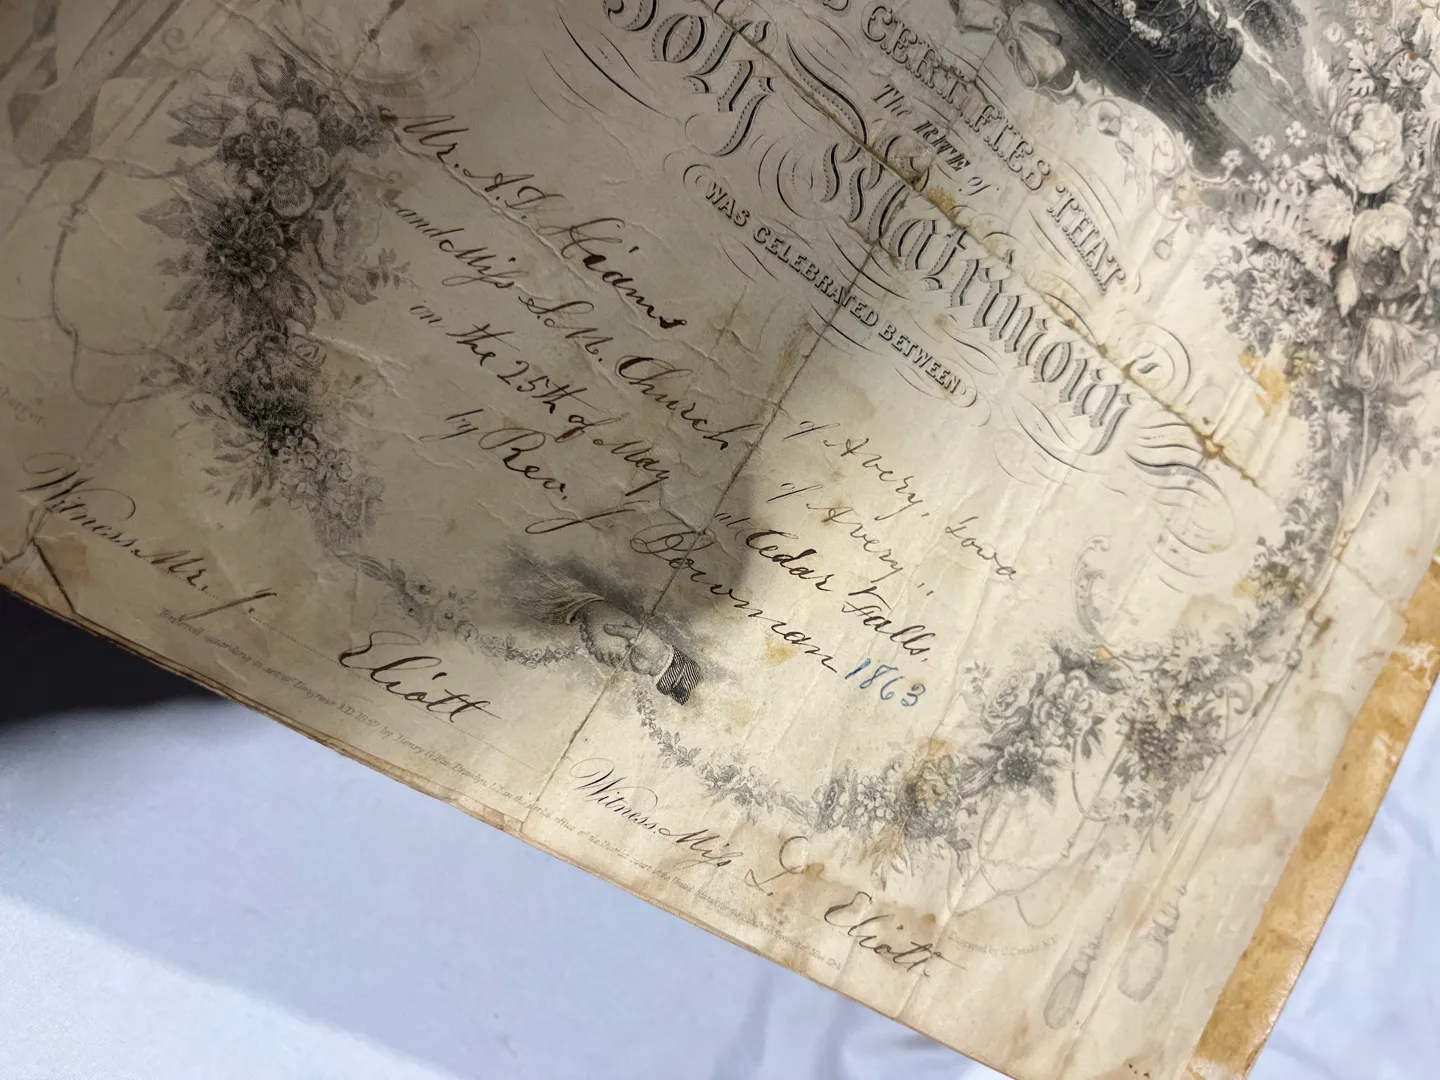 CERTIFIES THAT
The RITE of
Holy Matrimony
WAS CELEBRATED BETWEEN
Mr. A. I. Adams of Avery, Iowa
and Miss S. M. Church of Avery, "
on the 25th of May at Cedar Falls.
by Rev. J Bowman 1863
Witness Mr. J. Eliott
Witness Miss L. Eliott.
Entered according to act of Congress A.D. 1857 by Henry